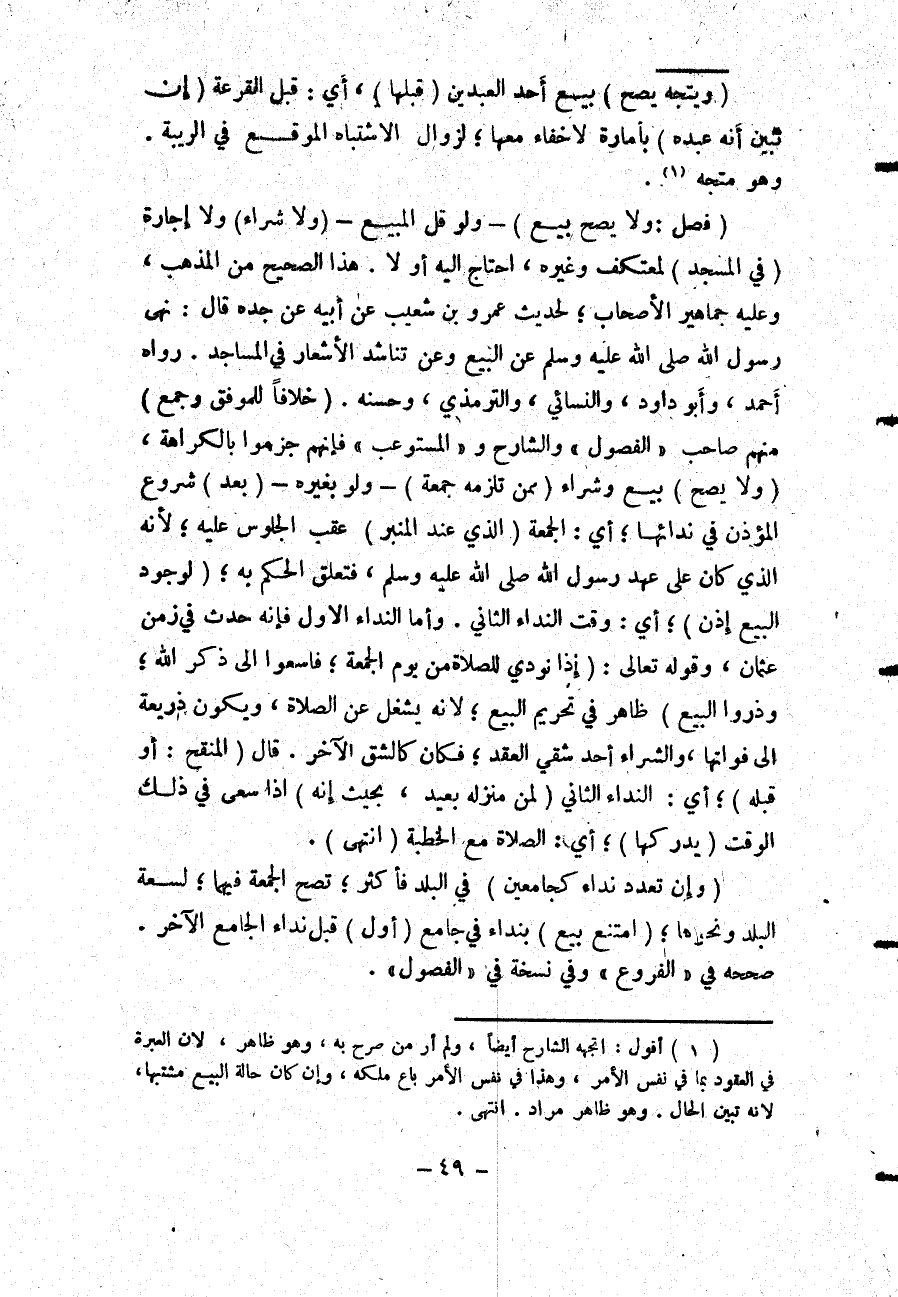 ( ويتجه يصح ) بيع أحد العبدين ( قبلها ) ، أي : قبل القرعة ( إن
تبين أنه عبده ) بأمارة لاخفاء معها ؛ لزوال الاشتباه الموقع في الريبة .
وهو متجه (١) .
( فصل : ولا يصح بيع ) – ولو قل المبيع – (ولا شراء) ولا إجارة
( في المسجد ) لمعتكف وغيره ، احتاج اليه أو لا . هذا الصحيح من المذهب ،
وعليه جماهير الأصحاب ؛ لحديث عمرو بن شعيب عن أبيه عن جده قال : نهى
رسول الله صلى الله عليه وسلم عن البيع وعن تناشد الأشعار في المساجد . رواه
أحمد ، وأبو داود ، والنسائي ، والترمذي ، وحسنه . ( خلافاً للموفق وجمع )
منهم صاحب « الفصول » والشارح و « المستوعب » فإنهم جزموا بالكراهة ،
( ولا يصح ) بيع وشراء ( ممن تلزمه جمعة ) – ولو بغيره – ( بعد ) شروع
المؤذن في ندائها ؛ أي : الجمعة ( الذي عند المنبر ) عقب الجلوس عليه ؛ لأنه
الذي كان على عهد رسول الله صلى الله عليه وسلم ، فتعلق الحكم به ؛ ( لوجود
البيع إذن ) ؛ أي : وقت النداء الثاني . وأما النداء الاول فإنه حدث في زمن
عثمان ، وقوله تعالى : ( إذا نودي للصلاة من يوم الجمعة ؛ فاسعوا الى ذكر الله ؛
وذروا البيع ) ظاهر في تحريم البيع ؛ لانه يشغل عن الصلاة ، ويكون ذريعة
الى فواتها ،والشراء أحد شقي العقد ؛ فكان كالشق الآخر . قال ( المنقح : أو
قبله ) ؛ أي : النداء الثاني ( لمن منزله بعيد ، بحيث إنه ) اذا سعى في ذلك
الوقت ( يدركها ) ؛ أي : الصلاة مع الخطبة ( انتهى ) .
( وإن تعدد نداء كجامعين ) في البلد فأكثر ؛ تصح الجمعة فيها ؛ لسعة
البلد ونحوها ؛ ( امتنع بيع ) بنداء في جامع ( أول ) قبل نداء الجامع الآخر .
صححه في « الفروع » وفي نسخة في « الفصول» .
( ١ ) أقول : اتجهه الشارح أيضاً ، ولم أر من صرح به ، وهو ظاهر ، لان العبرة
في العقود بما في نفس الأمر ، وهذا في نفس الأمر باع ملكه ، وإن كان حالة البيع مشتبها،
لانه تبين الحال . وهو ظاهر مراد . انتهى .
– ٤٩ –